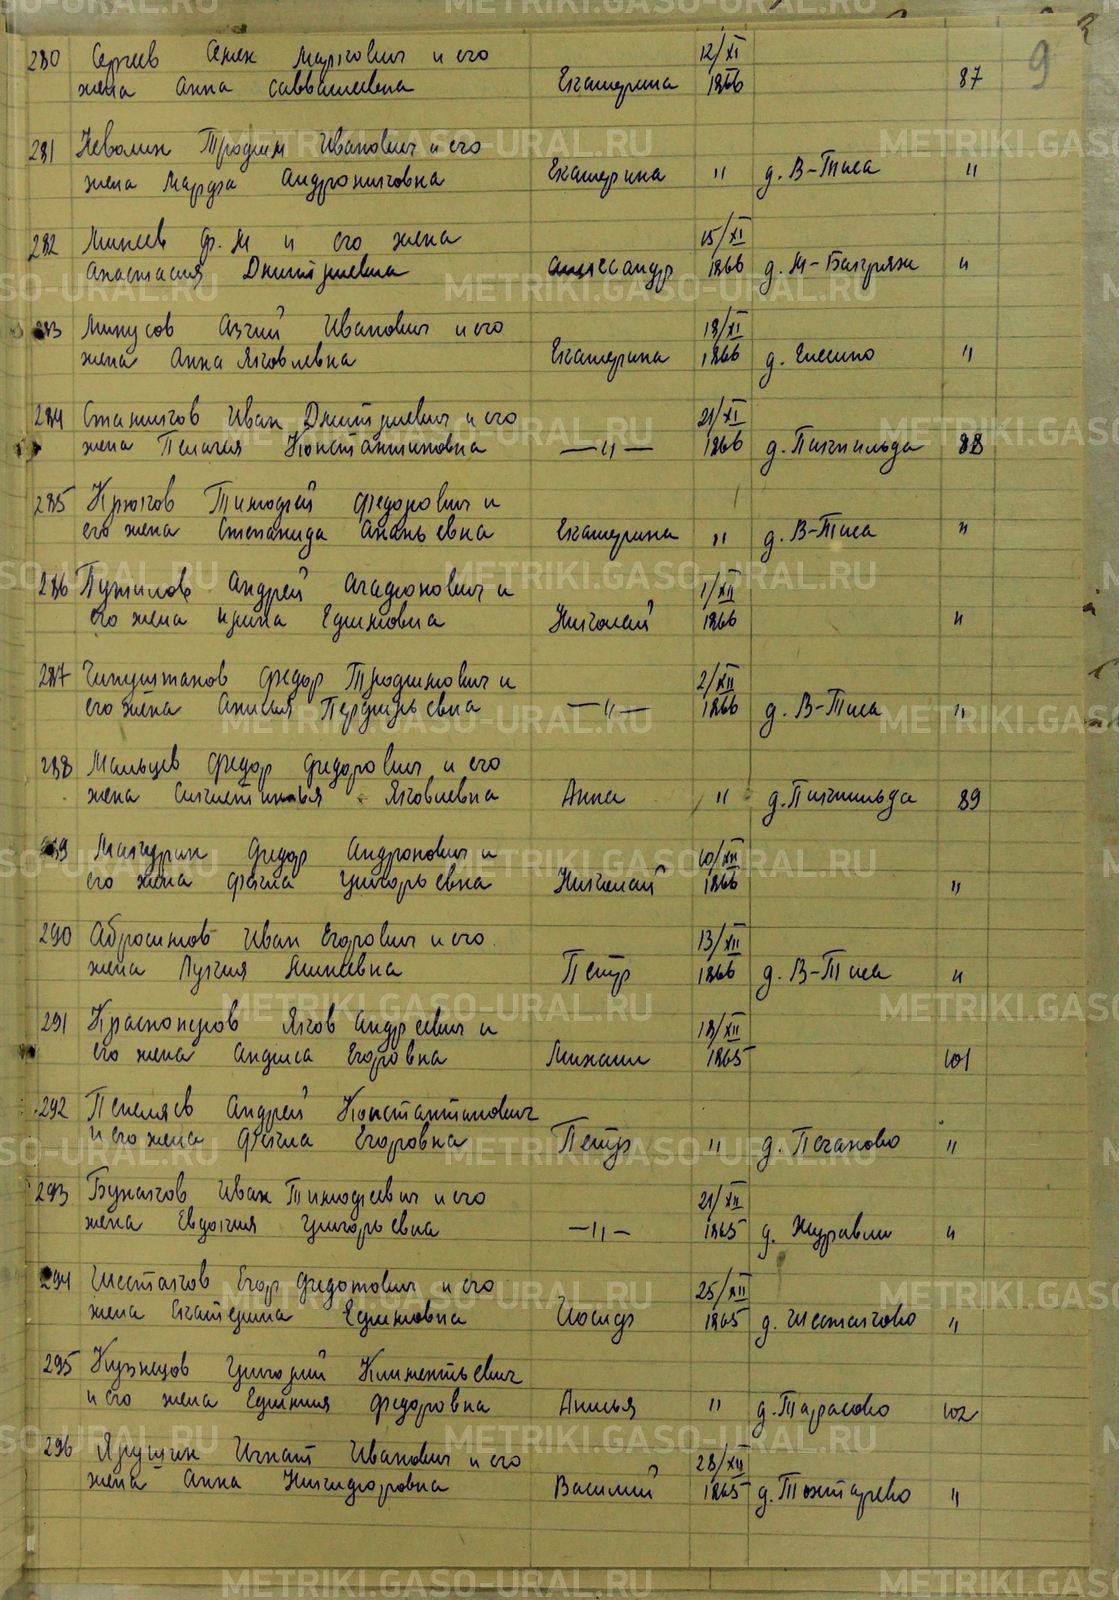 9
280 Сергеев Семен Маркович и его
жена Анна Савватеевна Екатерина 12/XI 1866 87
281 Неволин Трофим Иванович и его
жена Марфа Андрониковна Екатерина " д. В-Тиса "
282 Минеев Ф. М и его жена
Анастасия Дмитриевна Александр 15/XI 1866 д. М-Багряж "
283 Минусов Иванович и его
жена Анна Яковлевна Екатерина 18/XI 1866 д. "
284 Сташков Иван Дмитриевич и его
жена Пелагия Константиновна —"— 21/XI 1866 д. 88
285 Крюков Тимофей Федорович и
его жена Степанида Ананьевна Екатерина " д. В-Тиса "
286 Пужилов Андрей Агафонович и
его жена Ирина Ефимовна Николай 1/XII 1866 "
287 Чипуштанов Федор Трофимович и
его жена Анисья Перфильевна —"— 2/XII 1866 д. В-Тиса "
288 Мальцев Федор Федорович и его
жена Яковлевна Анна " д. 89
289 Мангурин Федор Андронович и
его жена Фекла Григорьевна Николай 10/XII 1866 "
290 Абросимов Иван Егорович и его
жена Лукия Якимовна Петр 13/XII 1866 д. В-Тиса "
291 Красноперов Яков Андреевич и
его жена Анфиса Егоровна Михаил 18/XII 1865 101
292 Пепеляев Андрей Константинович
и его жена Фекла Егоровна Петр " д. "
293 Бунаков Иван Тимофеевич и его
жена Евдокия Григорьевна —"— 21/XII 1865 д. Журавли "
294 Шестаков Егор Федотович и его
жена Екатерина Ефимовна Иосиф 25/XII 1865 д. Шестаково "
295 Кузнецов Григорий Климентьевич
и его жена Ефимия Федоровна Анисья " д. Тарасово 102
296 Ярушин Игнат Иванович и его
жена Анна Никифоровна Василий 28/XII 1865 д. Тохтарево "
METRIKI.GASO-URAL.RU